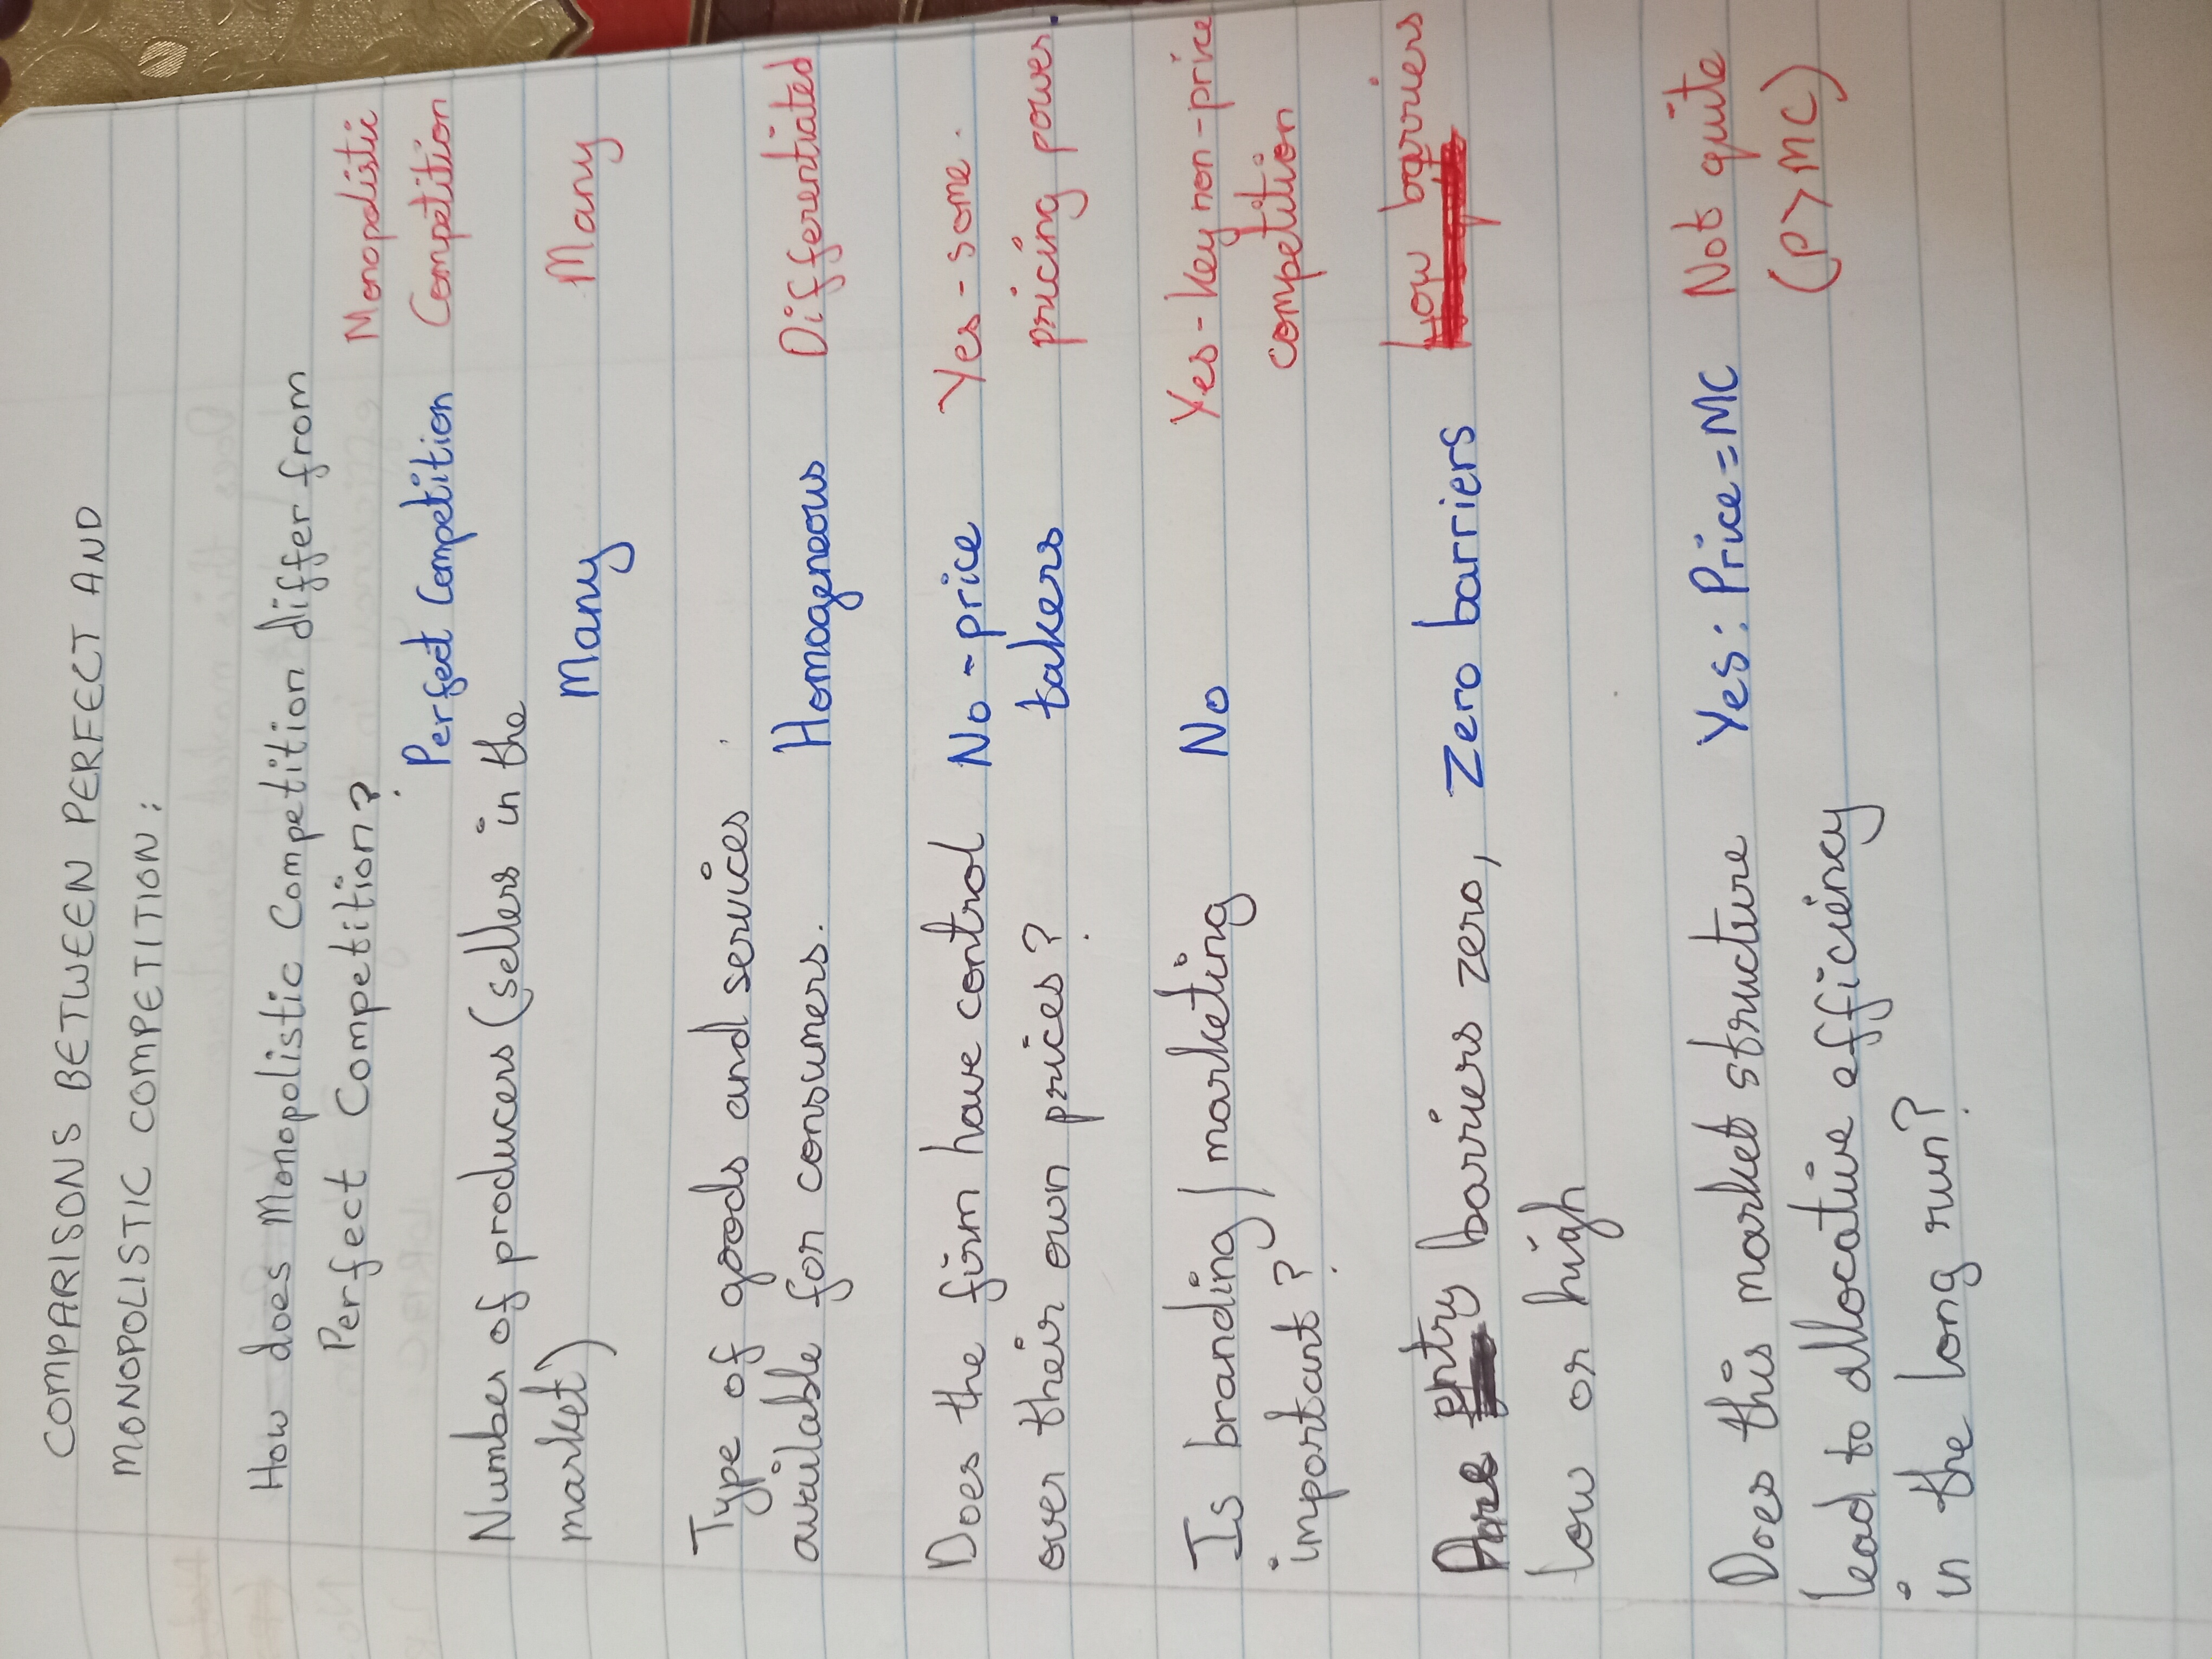 COMPARISONS BETWEEN PERFECT AND
MONOPOLISTIC COMPETITION:
How does Monopolistic Competition differ from
Perfect Competition?
Perfect Competition
Monopolistic
Competition
Number of producers (sellers in the
market)
Many
Many
Type of goods and services
available for consumers.
Homogeneous
Differentiated
Does the firm have control
over their own prices?
No - price
takers
Yes - some.
pricing power.
Is branding / marketing
important?
No
Yes - key non-price
competition
Are entry barriers zero,
low or high
Zero barriers
Low barriers
Does this market structure
lead to allocative efficiency
in the long run?
Yes: Price = MC
Not quite
(P > MC)